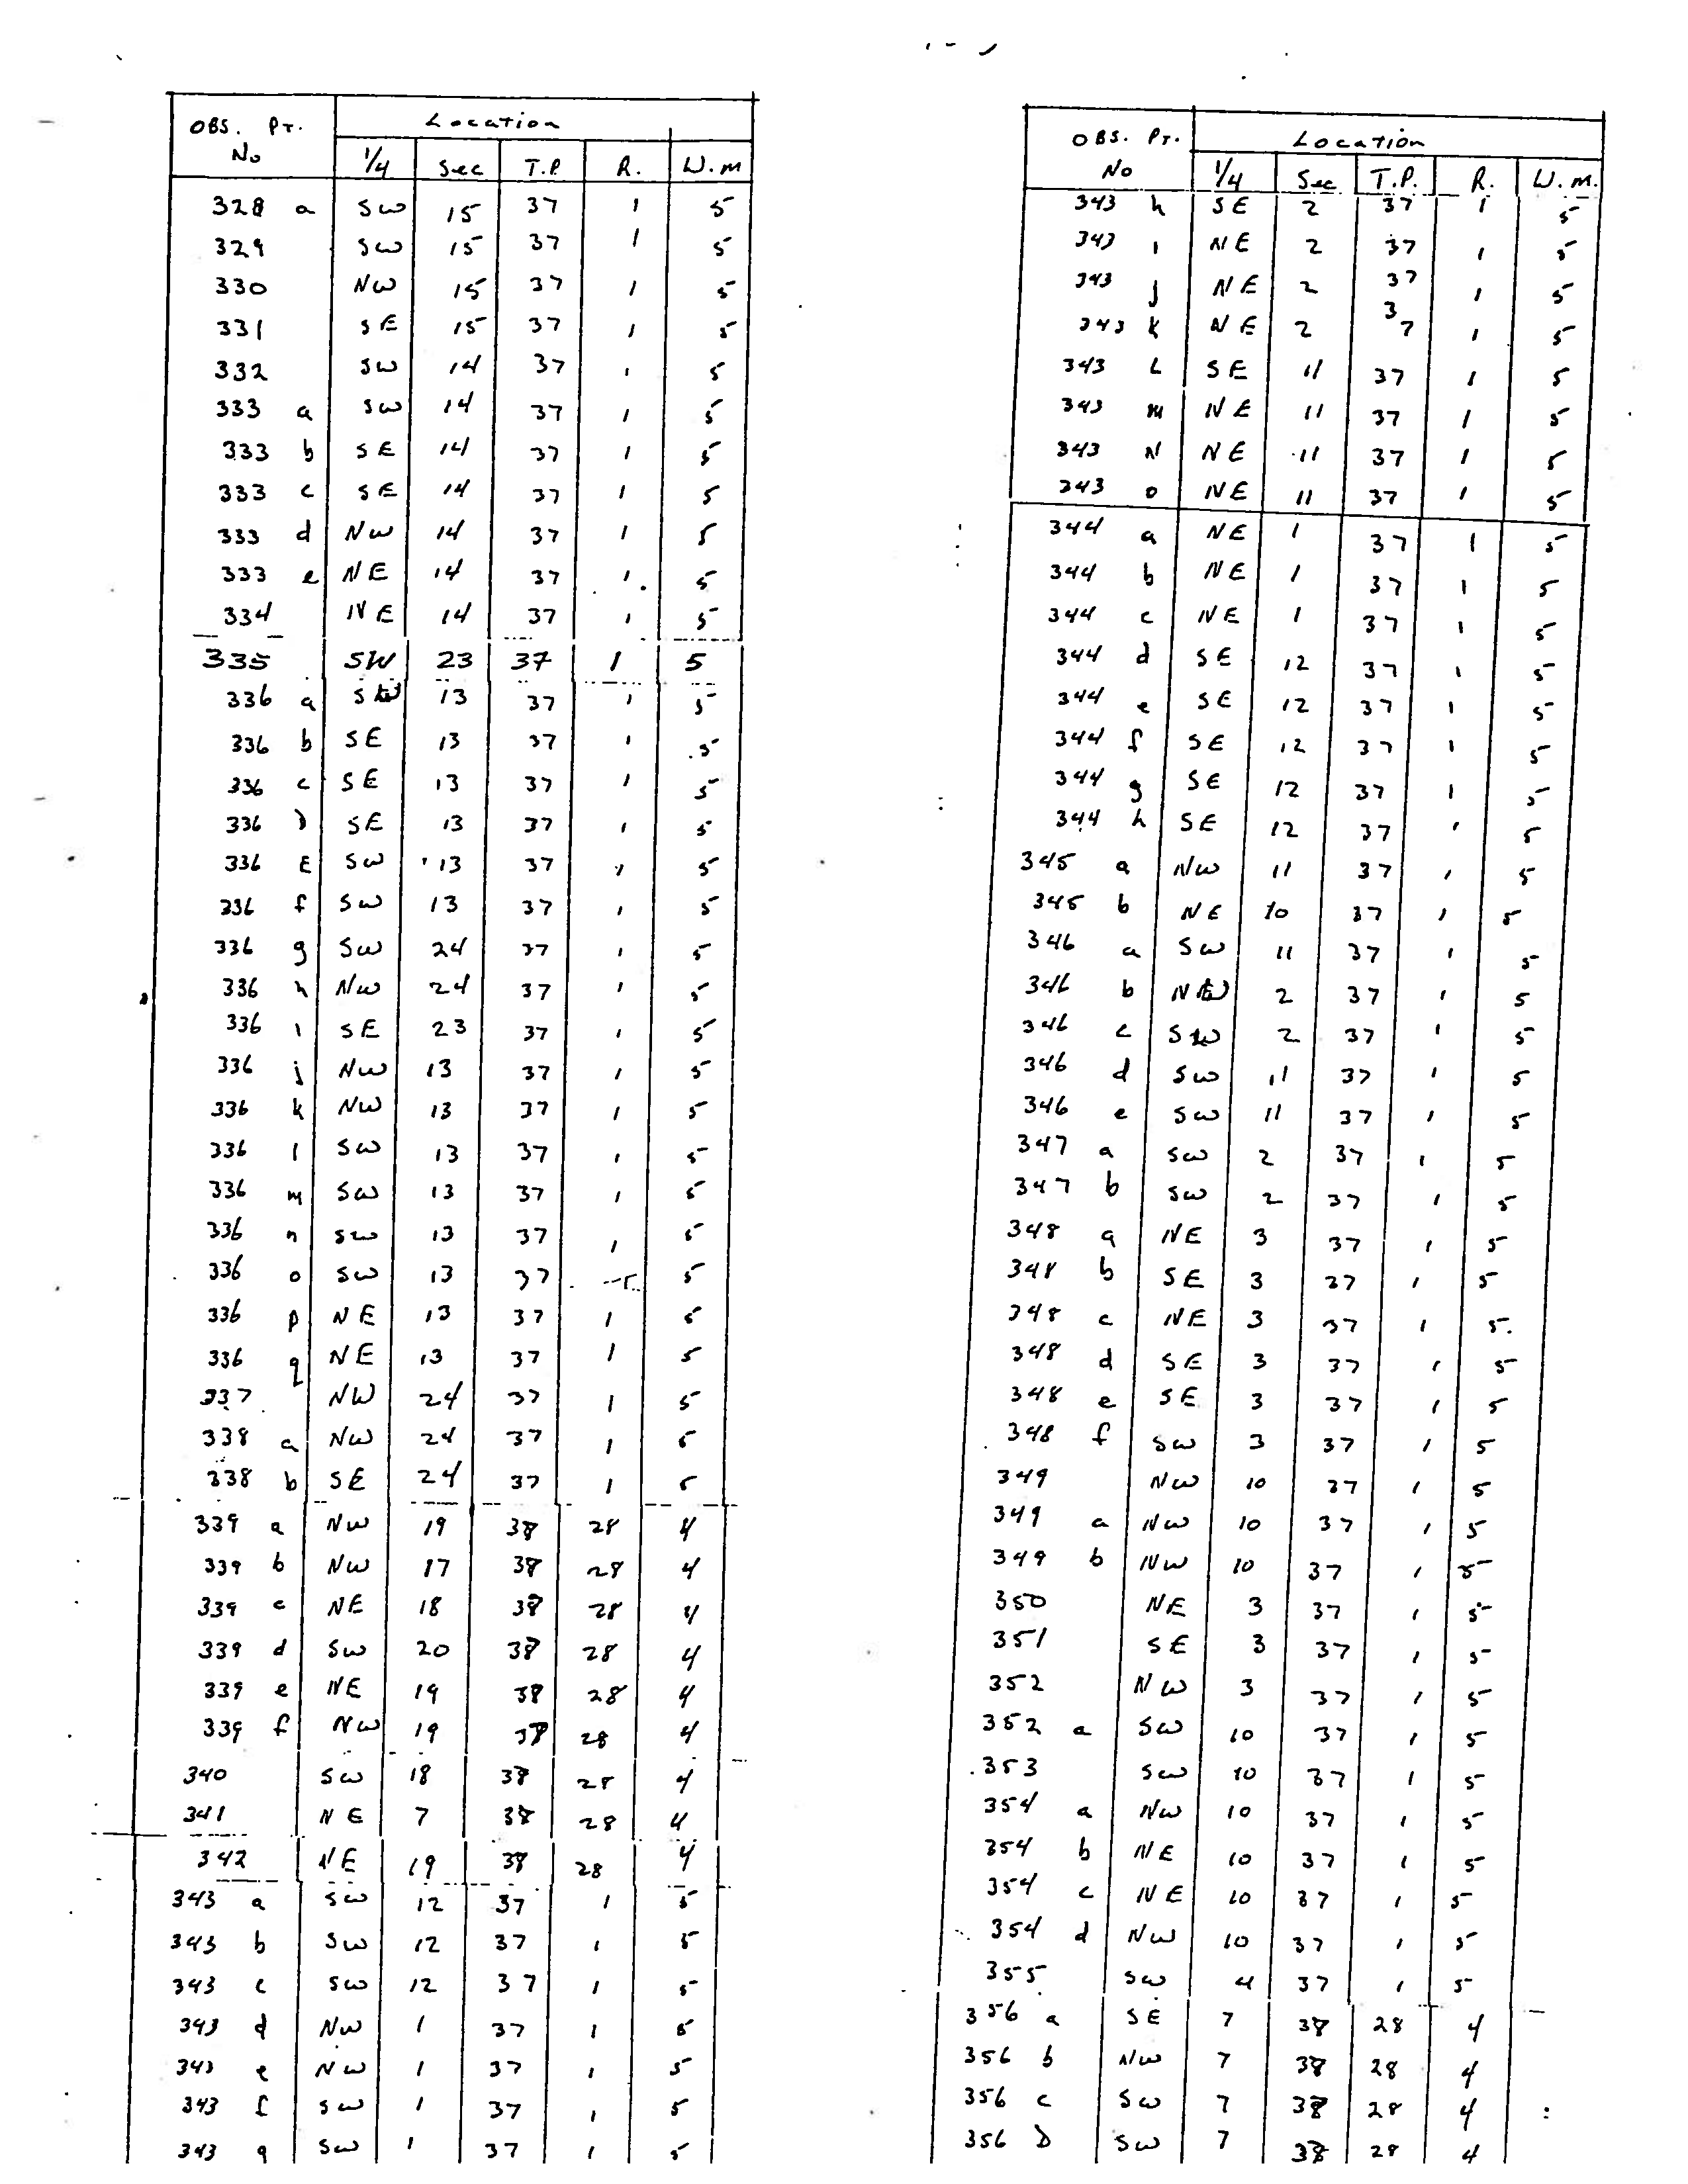 OBS. PT. Location
No 1/4 Sec T.P. R. W.M
328 a SW 15 37 1 5
329 SW 15 37 1 5
330 NW 15 37 1 5
331 SE 15 37 1 5
332 SW 14 37 1 5
333 a SW 14 37 1 5
333 b SE 14 37 1 5
333 c SE 14 37 1 5
333 d NW 14 37 1 5
333 e NE 14 37 1 5
334 NE 14 37 1 5
335 SW 23 37 1 5
336 a SW 13 37 1 5
336 b SE 13 37 1 5
336 c SE 13 37 1 5
336 D SE 13 37 1 5
336 E SW 13 37 1 5
336 f SW 13 37 1 5
336 g SW 24 37 1 5
336 h NW 24 37 1 5
336 i SE 23 37 1 5
336 j NW 13 37 1 5
336 k NW 13 37 1 5
336 l SW 13 37 1 5
336 m SW 13 37 1 5
336 n SW 13 37 1 5
336 o SW 13 37 5
336 p NE 13 37 1 5
336 q NE 13 37 1 5
337 NW 24 37 1 5
338 a NW 24 37 1 5
338 b SE 24 37 1 5
339 a NW 19 38 28 4
339 b NW 17 38 28 4
339 c NE 18 38 28 4
339 d SW 20 38 28 4
339 e NE 19 38 28 4
339 f NW 19 38 28 4
340 SW 18 38 28 4
341 NE 7 38 28 4
342 NE 19 38 28 4
343 a SW 12 37 1 5
343 b SW 12 37 1 5
343 c SW 12 37 1 5
343 d NW 1 37 1 5
343 e NW 1 37 1 5
343 f SW 1 37 1 5
343 g SW 1 37 1 5
OBS. PT. Location
No 1/4 Sec T.P. R. W.M.
343 h SE 2 37 1 5
343 i NE 2 37 1 5
343 j NE 2 37 1 5
343 k NE 2 37 1 5
343 L SE 11 37 1 5
343 m NE 11 37 1 5
343 N NE 11 37 1 5
343 o NE 11 37 1 5
344 a NE 1 37 1 5
344 b NE 1 37 1 5
344 c NE 1 37 1 5
344 d SE 12 37 1 5
344 e SE 12 37 1 5
344 f SE 12 37 1 5
344 g SE 12 37 1 5
344 h SE 12 37 1 5
345 a NW 11 37 1 5
345 b NE 10 37 1 5
346 a SW 11 37 1 5
346 b NW 2 37 1 5
346 c SW 2 37 1 5
346 d SW 11 37 1 5
346 e SW 11 37 1 5
347 a SW 2 37 1 5
347 b SW 2 37 1 5
348 a NE 3 37 1 5
348 b SE 3 37 1 5
348 c NE 3 37 1 5
348 d SE 3 37 1 5
348 e SE 3 37 1 5
348 f SW 3 37 1 5
349 NW 10 37 1 5
349 a NW 10 37 1 5
349 b NW 10 37 1 5
350 NE 3 37 1 5
351 SE 3 37 1 5
352 NW 3 37 1 5
352 a SW 10 37 1 5
353 SW 10 37 1 5
354 a NW 10 37 1 5
354 b NE 10 37 1 5
354 c NE 10 37 1 5
354 d NW 10 37 1 5
355 SW 4 37 1 5
356 a SE 7 38 28 4
356 b NW 7 38 28 4
356 c SW 7 38 28 4
356 D SW 7 38 28 4